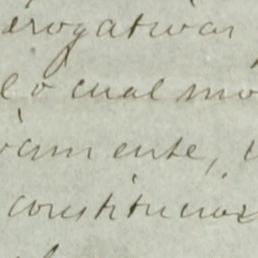 erogativas
lo cual mo
vamente,
constitucion